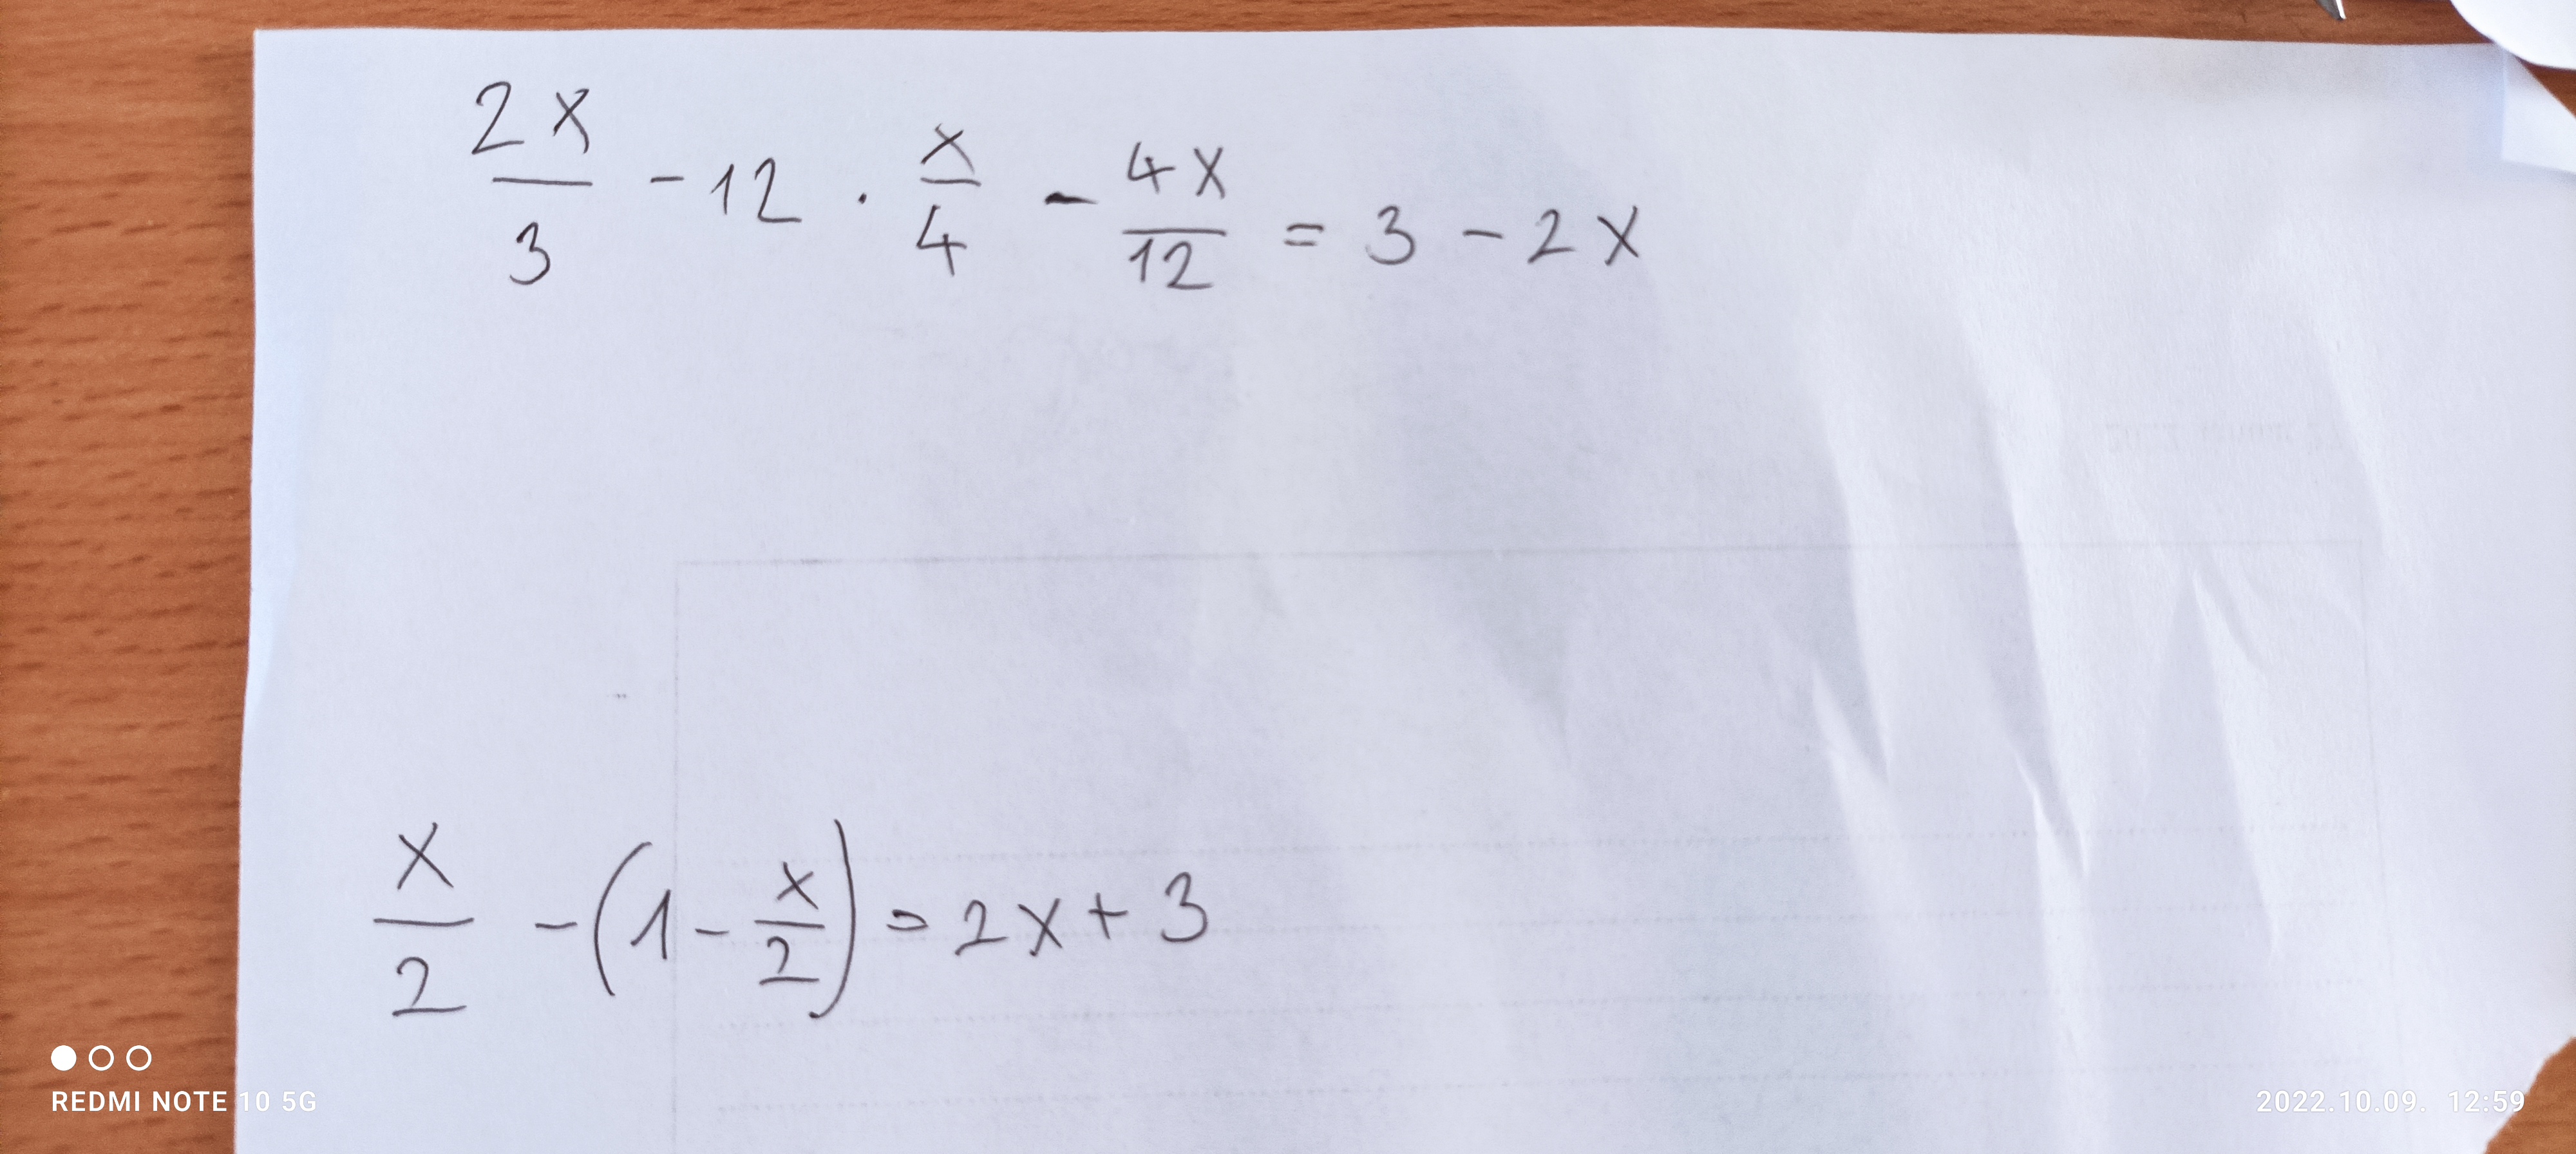 2x/3 - 12 · x/4 - 4x/12 = 3 - 2x
x/2 - (1 - x/2) = 2x + 3
REDMI NOTE 10 5G
2022.10.09. 12:59